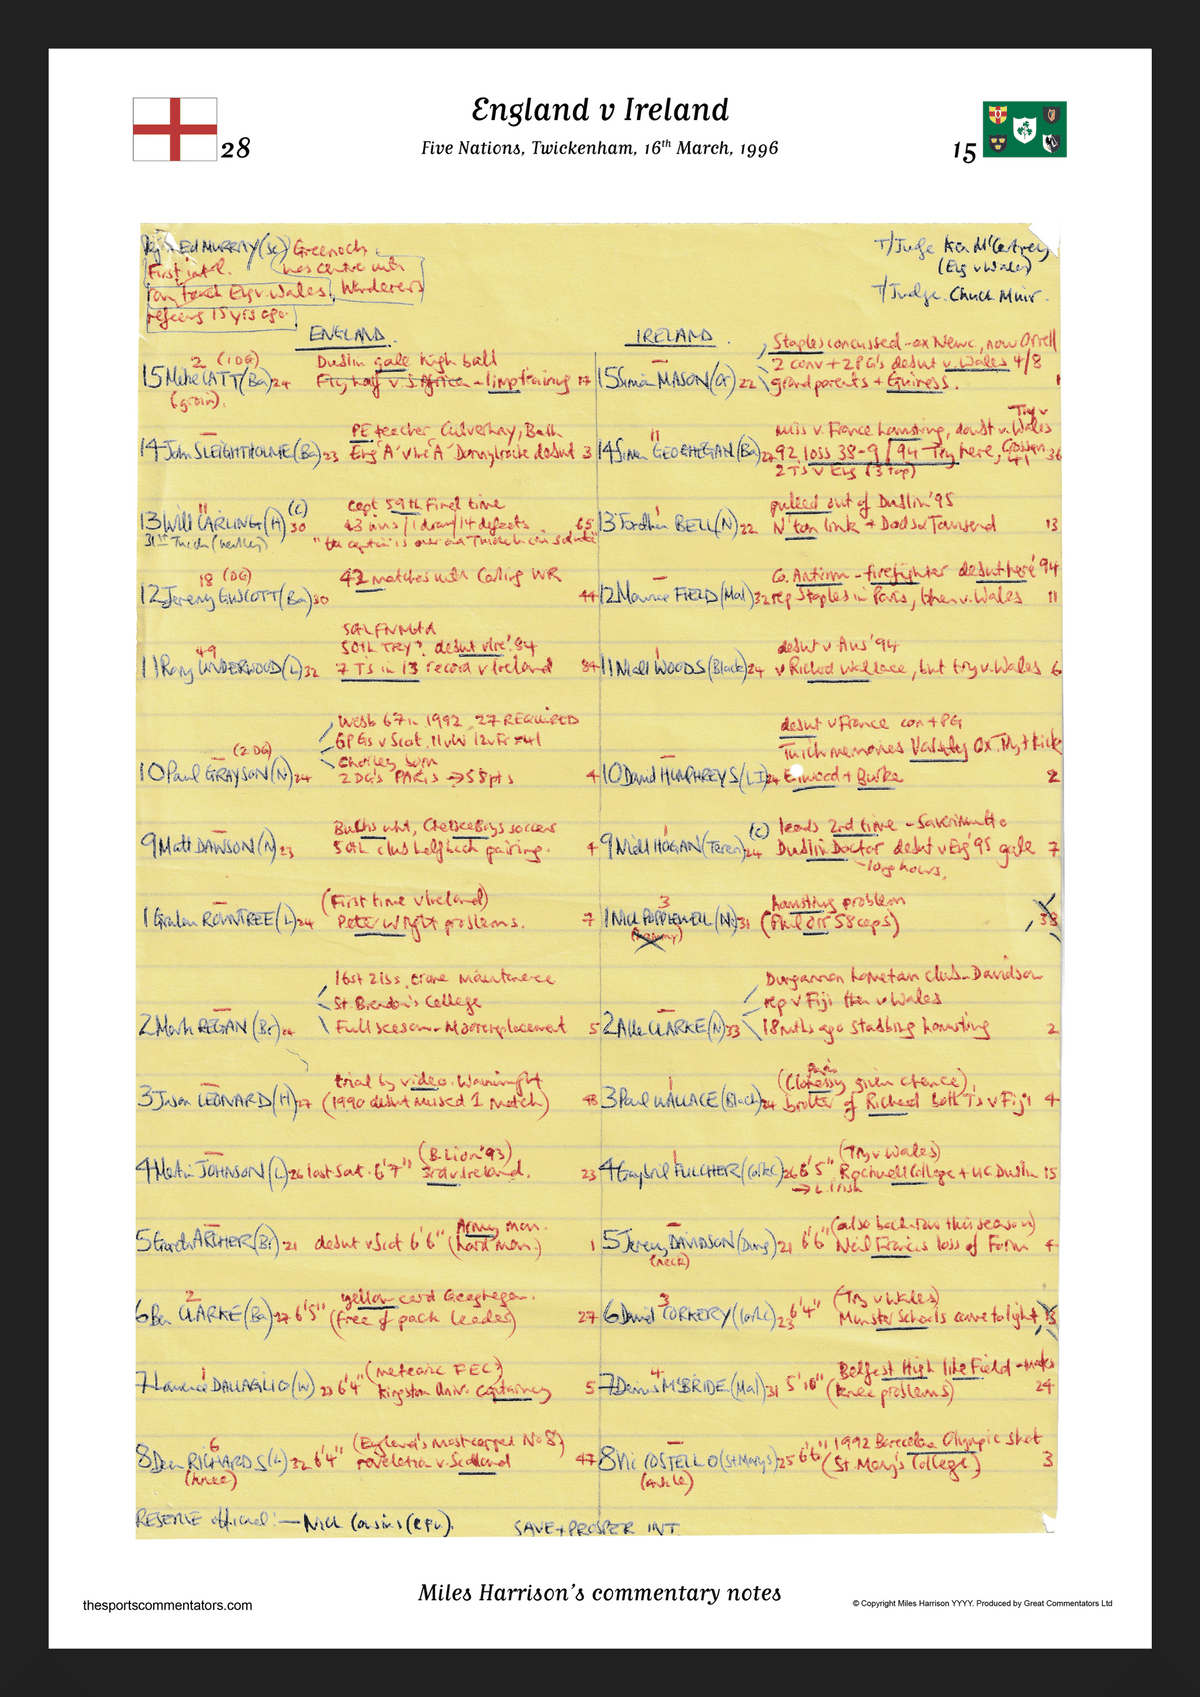 England v Ireland
Five Nations, Twickenham, 16th March, 1996
28
15
ED MURRAY (Sc) Greenock
First int'l. has centre with
run touch Eng v Wales, Wanderers
refereeing 15 yrs ago.
T/Judge Ken McCartney
(Eng v Wales)
T/Judge. Chuck Muir.
ENGLAND.
IRELAND.
2 (1DG)
15 Mike CATT (Ba) 24
(groin).
Dublin gale high ball
Fly half v S. Africa - limp training 17
15 Simon MASON (Or) 22
Staples concussed - ex Newc, now Orrell
2 conv + 2 PG's debut v. Wales 4/8
grandparents + Guiness. 1
14 John SLEIGHTHOLME (Ba) 23
PE teacher Culverhay, Bath
Eng 'A' v Ire 'A' Donnybrook debut 3
11
14 Simon GEOGHEGAN (Ba) 27
Try v
miss v. France hamstring, doubt v. Wales
92 loss 38-9 / 94 Try here, 36
2 Ts v Eng (3 top)
11
13 Will CARLING (H) (C) 30
capt 59th Final time
43 wins / 1 draw / 14 defeats 65
13 Jordhan BELL (N) 22
pulled out of Dublin '95
N'ton link + Dods + Townsend 13
18 (DG)
12 Jeremy GUSCOTT (Ba) 30
42 matches with Carling WR
44
12 Maurice FIELD (Mal) 32
Co. Antrim - firefighter debut here '94
rep Staples in Paris, then v. Wales 11
49
11 Rory UNDERWOOD (L) 32
50th TRY? debut v Ire '84
7 Ts in 13 record v Ireland 84
1
11 Niall WOODS (Black) 24
debut v Aus '94
v Richard Wallace, but try v. Wales 6
(2 DG)
10 Paul GRAYSON (N) 24
Webb 67 in 1992 27 REQUIRED
6 PGs v Scot, 11 v W 12 v Fr = 41
Chorley born
2 DG's PARIS → 58 pts 4
10 David HUMPHREYS (LI) 24
debut v France con + PG
Twick memories Varsity Ox. Try + kicks
Elwood + Burke 2
9 Matt DAWSON (N) 23
Bucks wht, Chelsea Boys soccer
50th club half back pairing. 4
1
9 Niall HOGAN (Teren) (C) 24
leads 2nd time - Saverimutto
Dublin Doctor debut v Eng '95 gale 7
long hours,
1 Graham ROWNTREE (L) 24
(First time v Ireland)
Peter Wright problems. 7
3
1 Nick POPPLEWELL (N) 31
hamstring problem
(Phil Orr 58 caps) 38
2 Mark REGAN (Br) 24
16st 2lbs, crane maintenance
St Brendan's College
Full season - Moore replacement 5
2 Allen CLARKE (N) 33
Dungannon hometown club - Davidson
rep v Fiji then v Wales
18 mths ago stabbing hamstring 2
3 Jason LEONARD (H) 27
trial by video. Wainwright
(1990 debut missed 1 match) 48
1
3 Paul WALLACE (Black) 24
Paris
(Clohessy given chance),
brother of Richard both Ts v Fiji 4
4 Martin JOHNSON (L) 26 last Sat. 6'7"
(B. Lion '93)
3rd v Ireland. 23
1
4 Gabriel FULCHER (Cork C) 26 6'5"
(Try v Wales)
Rockwell College + UC Dublin 15
→ L. Irish
5 Garath ARCHER (Br) 21 debut v Scot 6'6"
Army man.
(hard man.) 1
5 Jeremy DAVIDSON (Dung) 21 6'6"
(neck)
(also back row this season)
Neil Francis loss of form 4
2
6 Ben CLARKE (Ba) 27 6'5"
yellow card Geoghegan.
(free of pack leader) 27
3
6 David CORKERY (Cork C) 23 6'4"
(Try v Wales)
Munster Schools came to light 13
1
7 Lawrence DALLAGLIO (W) 23 6'4"
(meteoric P.E.C?)
Kingston Univ. Captaincy 5
4
7 Denis McBRIDE (Mal) 31 5'10"
Belfast High like Field - marks
(knee problems) 24
6
8 Dean RICHARDS (L) 32 6'4"
(knee)
(England's most capped No 8)
revelation v. Scotland 47
8 Vic COSTELLO (St Mary's) 25 6'6"
(ankle)
1992 Barcelona Olympic shot
(St Mary's College) 3
RESERVE official: - Nick Cousins (RFU).
SAVE + PROSPER INT
Miles Harrison's commentary notes
thesportscommentators.com
© Copyright Miles Harrison YYYY. Produced by Great Commentators Ltd